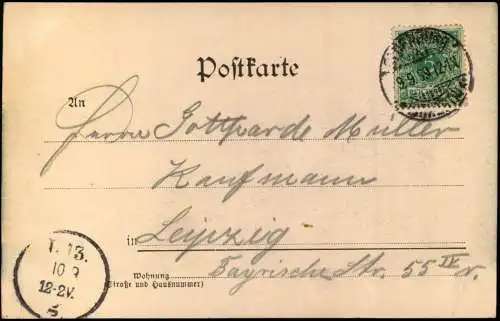 Postkarte
An
Herrn Gotthardt Müller
Kaufmann
in Leipzig
Wohnung
(Straße und Hausnummer)
Bayrische Str. 55 IV r.
L. 13.
10 9
12-2V.
5.